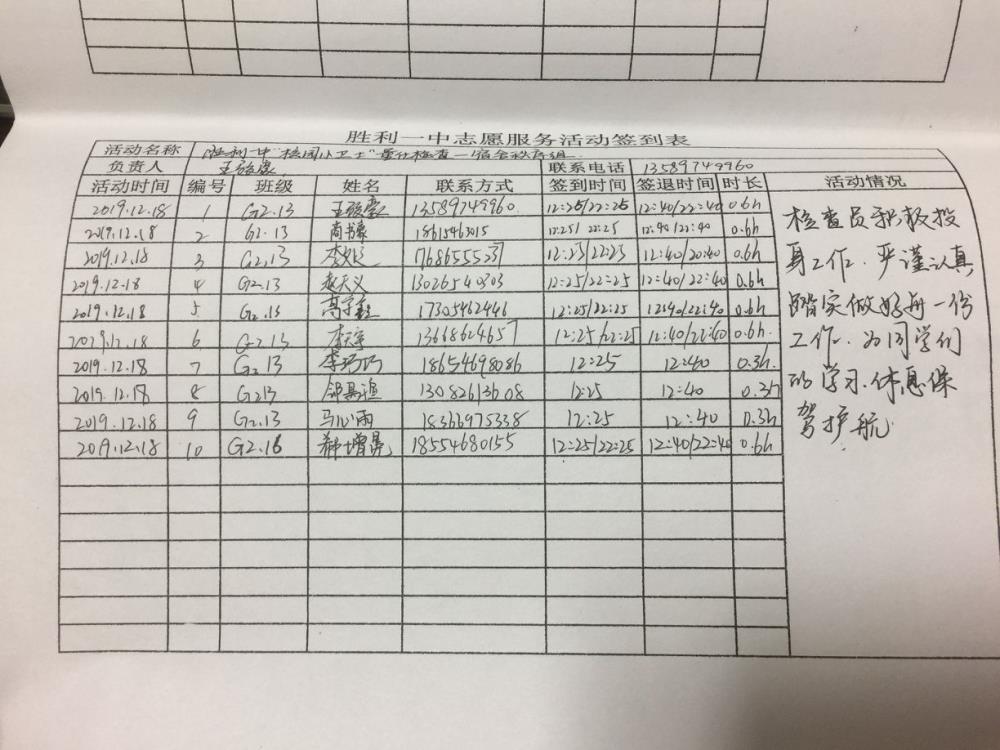 胜利一中志愿服务活动签到表
活动名称 胜利一中"校园小卫士"量化检查—宿舍秩序组
负责人 联系电话 13589749960
活动时间 编号 班级 姓名 联系方式 签到时间 签退时间 时长 活动情况
2019.12.18 1 G2.13 13589749960 12:25/22:25 12:40/22:40 0.6h
2019.12.18 2 G2.13 18615463015 12:25/22:25 12:40/22:40 0.6h
2019.12.18 3 G2.13 12:23/22:23 12:40/20:40 0.6h
2019.12.18 4 G2.13 赵天义 13026540303 12:25/22:25 12:40/22:40 0.6h
2019.12.18 5 G2.13 17305462446 12:25/22:25 12:40/22:40 0.6h
2019.12.18 6 G2.13 13668624657 12:25/22:25 12:40/22:40 0.6h
2019.12.18 7 G2.13 李巧巧 18654698086 12:25 12:40 0.3h
2019.12.18 8 G2.13 13082613608 12:25 12:40 0.3h
2019.12.18 9 G2.13 马心雨 18366975338 12:25 12:40 0.3h
2019.12.18 10 G2.18 18554680155 12:25/22:25 12:40/22:40 0.6h
检查员积极投
身工作.严谨认真
踏实做好每一份
工作.为同学们
的学习.休息保
驾护航